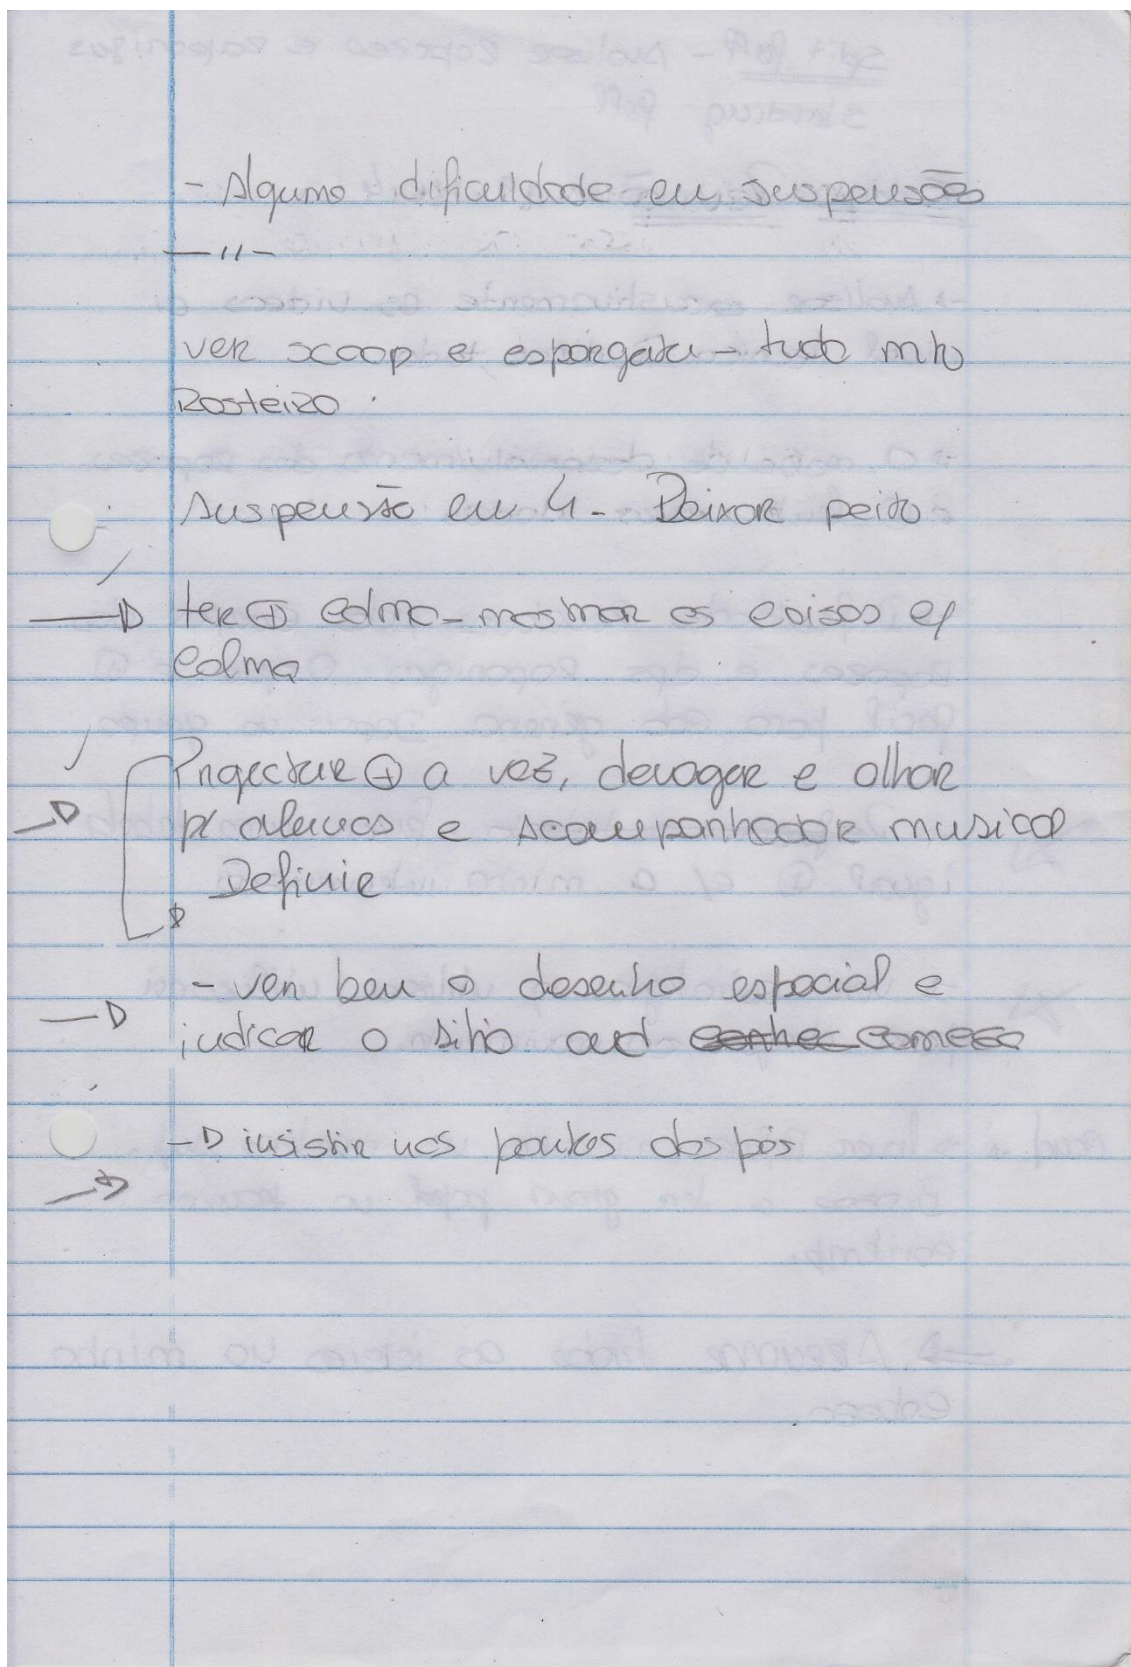 - Alguma dificuldade em suspensões
— 11 -
ver scoop e espargata - tudo mto
Rasteiro.
Suspensão em 4 - Deixar peito
→ ter ⊕ calma - mostrar as coisas c/
calma
→ Projectar ⊕ a voz, devagar e olhar
p/ alunos e Acompanhador musical
Definir
→ - ver bem o desenho espacial e
indicar o sitio ond conhec começa
→ insistir nas pontas dos pés